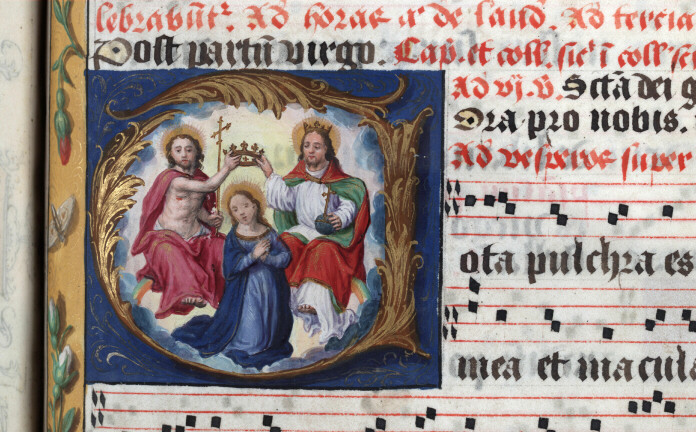 lebrabūtʳ. Ad horas ⁊ de laud. Ad tercia
Post partū virgo. Cap. et coll. sic ī coll
Ad vj. ℣. Sctā dei g
Ora pro nobis.
Ad vesperos super
ota pulchra es
mea et macula